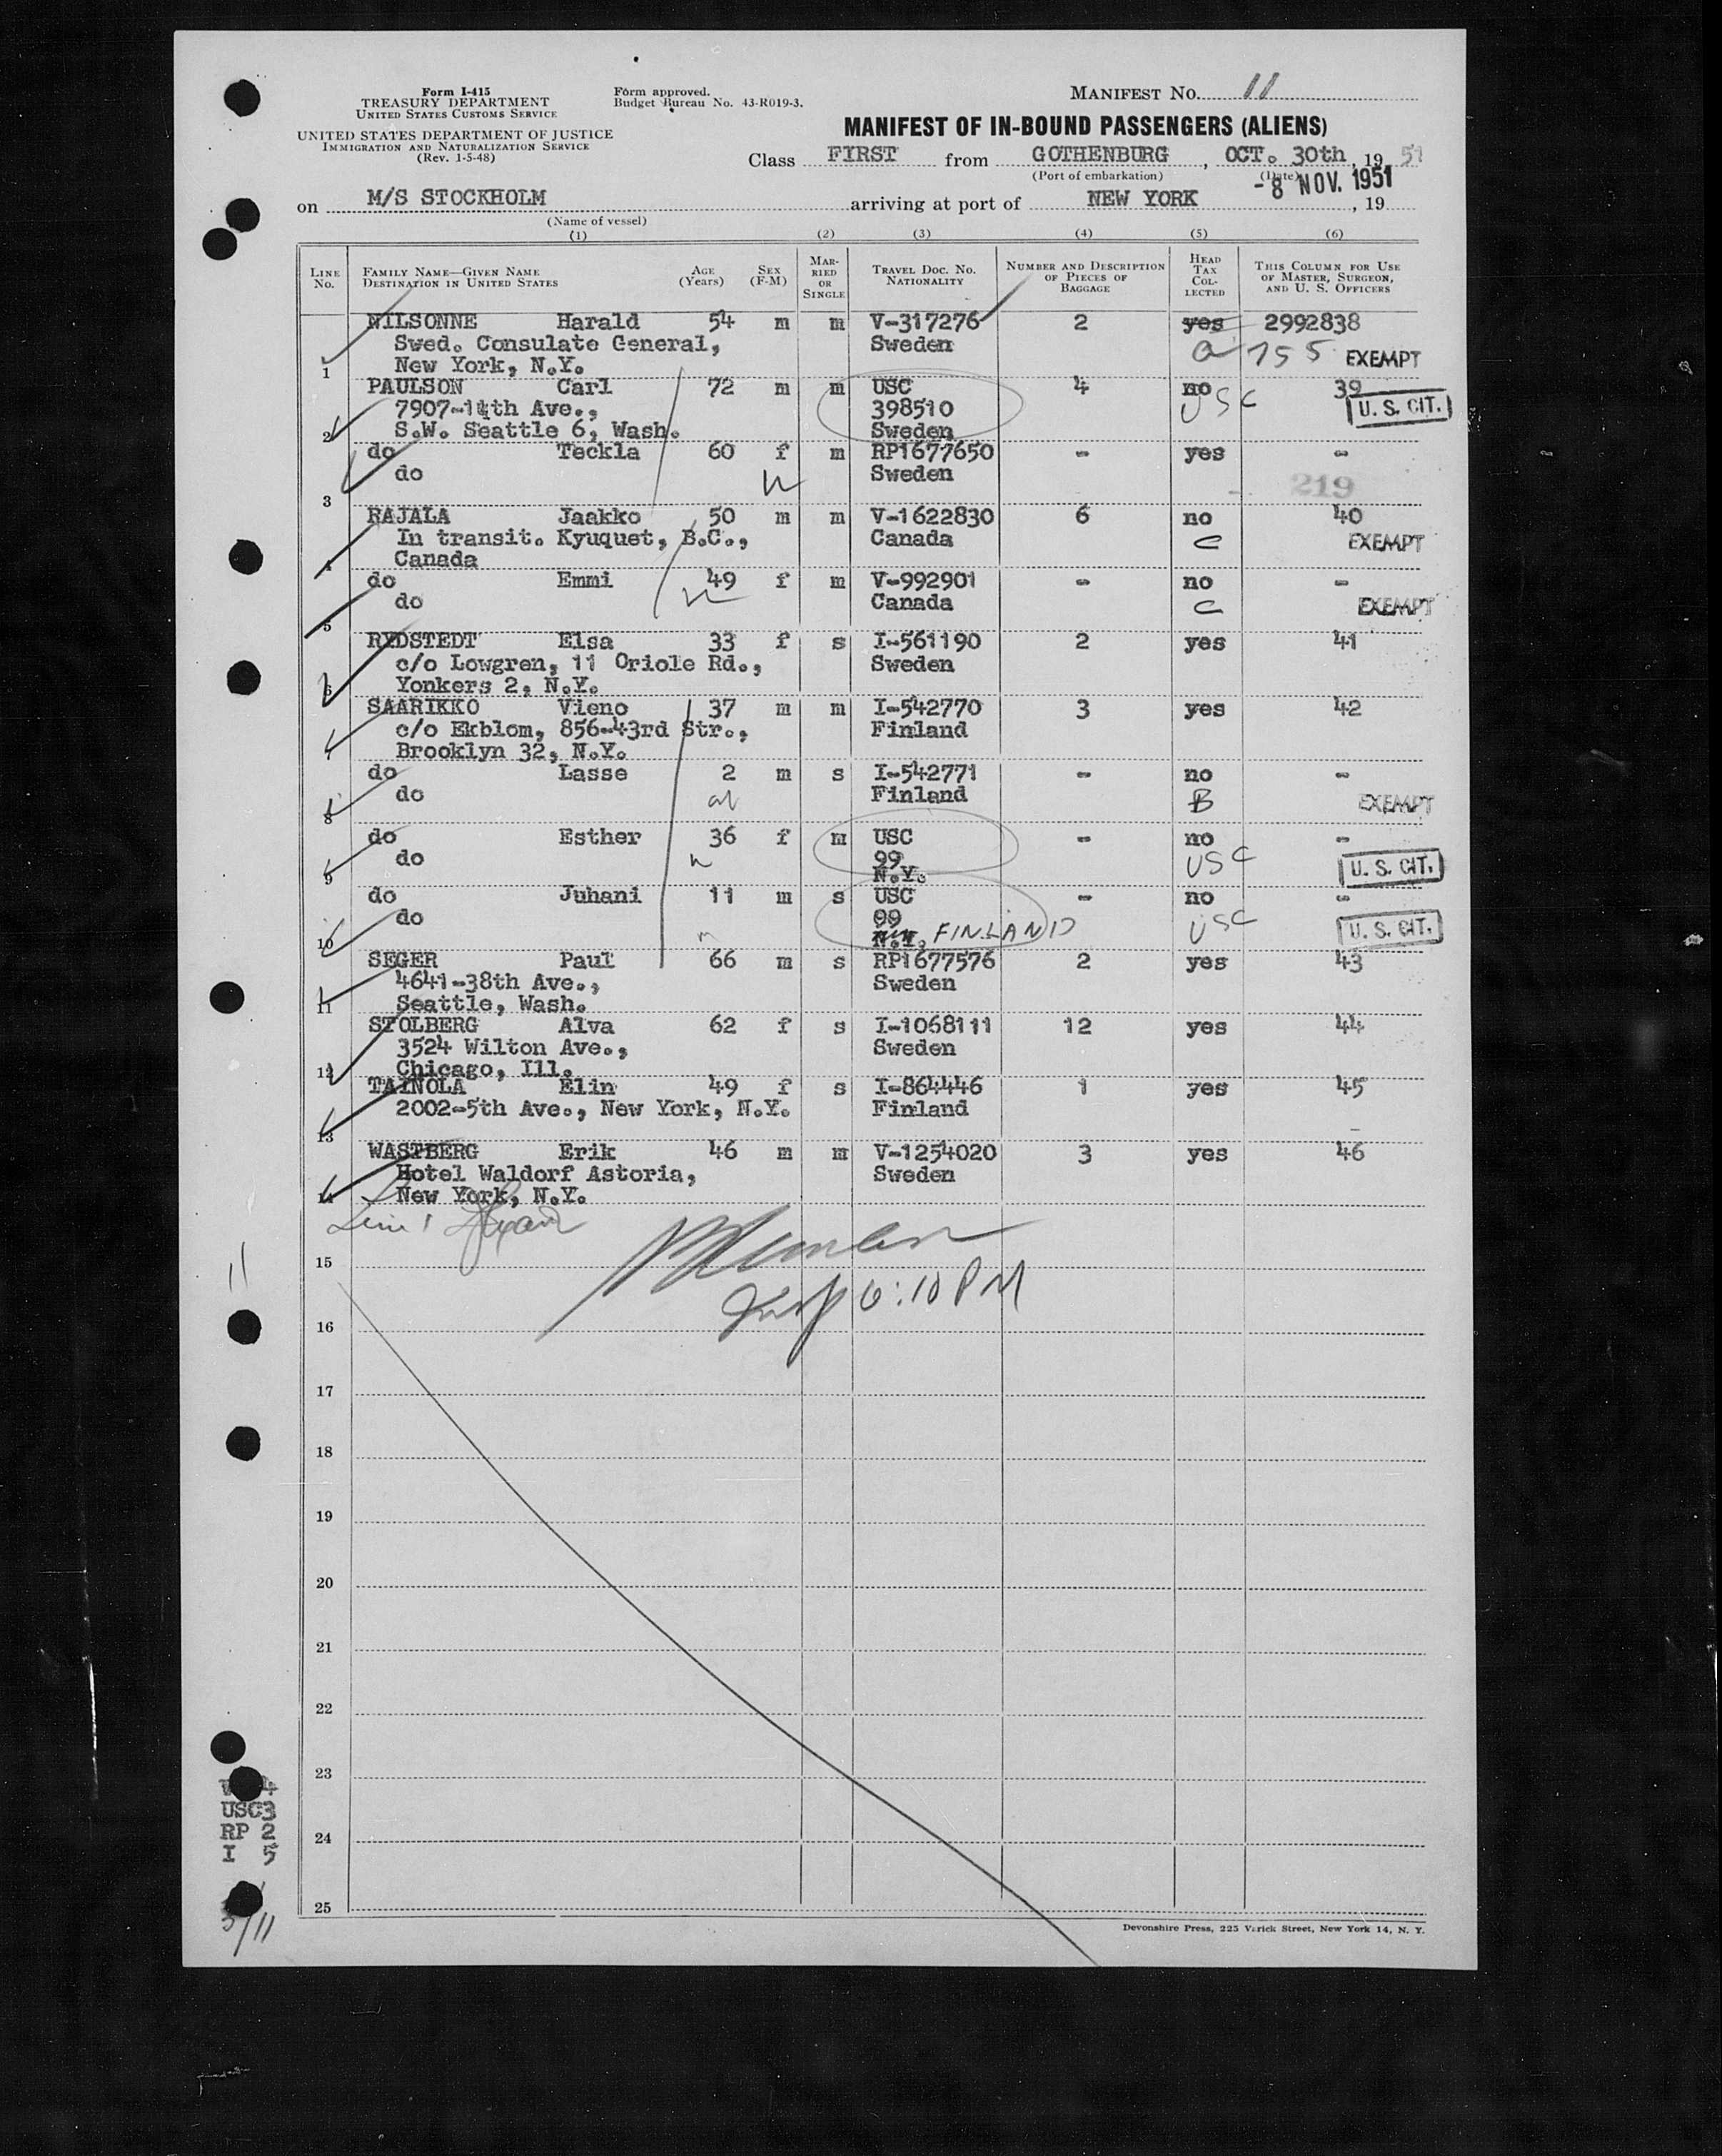 Form I-415
TREASURY DEPARTMENT
UNITED STATES CUSTOMS SERVICE
UNITED STATES DEPARTMENT OF JUSTICE
IMMIGRATION AND NATURALIZATION SERVICE
(Rev. 1-5-48)
Form approved.
Budget Bureau No. 43-R019-3.
MANIFEST No. 11
MANIFEST OF IN-BOUND PASSENGERS (ALIENS)
Class FIRST from GOTHENBURG, OCT. 30th, 19 51
(Port of embarkation) (Date)
-8 NOV. 1951
on M/S STOCKHOLM arriving at port of NEW YORK, 19
(Name of vessel)
(1) (2) (3) (4) (5) (6)
LINE No.
FAMILY NAME—GIVEN NAME
DESTINATION IN UNITED STATES
AGE (Years)
SEX (F-M)
MARRIED OR SINGLE
TRAVEL DOC. NO. NATIONALITY
NUMBER AND DESCRIPTION OF PIECES OF BAGGAGE
HEAD TAX COLLECTED
THIS COLUMN FOR USE OF MASTER, SURGEON, AND U. S. OFFICERS
NILSONNE Harald 54 m m V-317276 2 yes 2992838
Swed. Consulate General, Sweden a 755 EXEMPT
1 New York, N.Y.
PAULSON Carl 72 m m USC 4 no 39
7907-14th Ave., 398510 USC U. S. CIT.
2 S.W. Seattle 6, Wash. Sweden
do Teckla 60 f m RP1677650 - yes -
do Sweden
219
3
RAJALA Jaakko 50 m m V-1622830 6 no 40
In transit. Kyuquet, B.C., Canada C EXEMPT
4 Canada
do Emmi 49 f m V-992901 - no -
do Canada C EXEMPT
5
RYDSTEDT Elsa 33 f s I-561190 2 yes 41
c/o Lowgren, 11 Oriole Rd., Sweden
6 Yonkers 2, N.Y.
SAARIKKO Vieno 37 m m I-542770 3 yes 42
c/o Ekblom, 856-43rd Str., Finland
7 Brooklyn 32, N.Y.
do Lasse 2 m s I-542771 - no -
do Finland B EXEMPT
8
do Esther 36 f m USC - no -
do 99 USC U. S. CIT.
9 N.Y.
do Juhani 11 m s USC - no -
do 99 USC U. S. CIT.
10 N.Y. FINLAND
SEGER Paul 66 m s RP1677576 2 yes 43
4641-38th Ave., Sweden
11 Seattle, Wash.
STOLBERG Alva 62 f s I-1068111 12 yes 44
3524 Wilton Ave., Sweden
12 Chicago, Ill.
TAINOLA Elin 49 f s I-864446 1 yes 45
2002-5th Ave., New York, N.Y. Finland
13
WASTBERG Erik 46 m m V-1254020 3 yes 46
Hotel Waldorf Astoria, Sweden
14 New York, N.Y.
Line 1
15
6:10 PM
16
17
18
19
20
21
22
23
24
25
V 4
USC3
RP 2
I 5
11
Devonshire Press, 225 Varick Street, New York 14, N. Y.